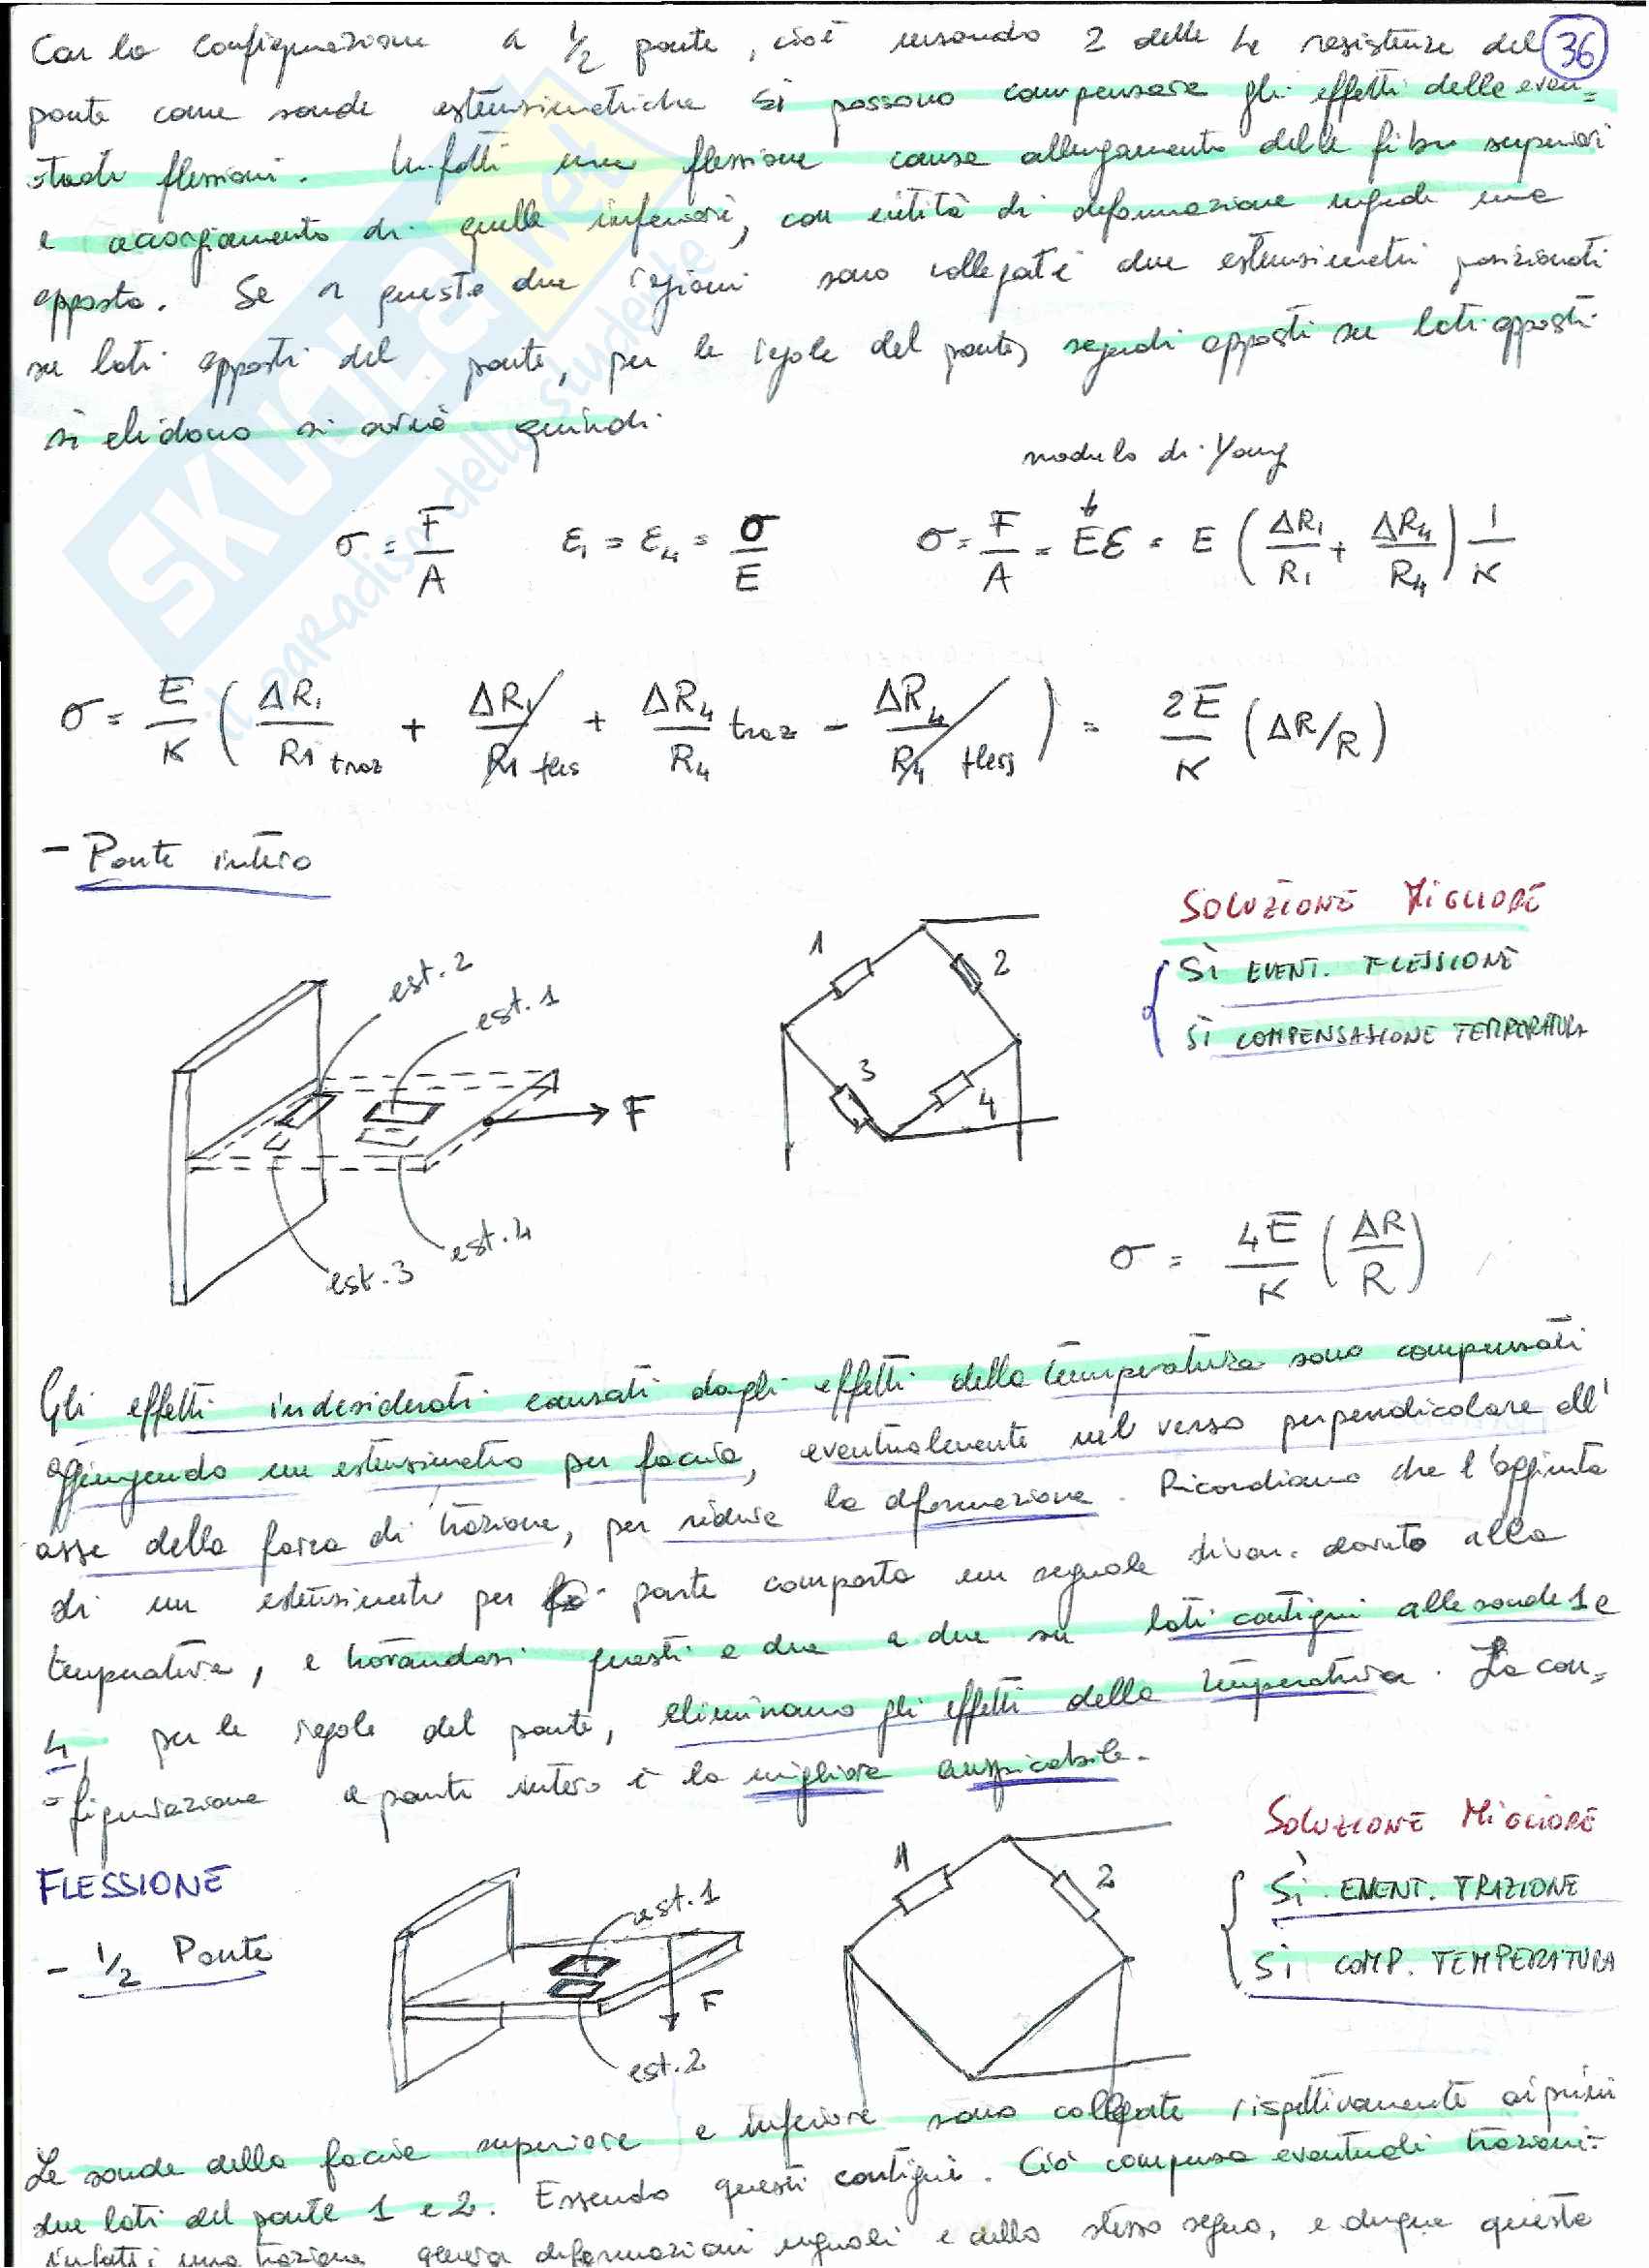 Con la configurazione a 1/2 ponte, cioè usando 2 delle 4 resistenze del 36
ponte come sonde estensimetriche si possono compensare gli effetti delle even=
=tuali flessioni. Infatti una flessione causa allungamento delle fibre superiori
e accorciamento di quelle inferiori, con entità di deformazione uguale ma
opposta. Se a queste due regioni sono collegati due estensimetri posizionati
su lati opposti del ponte, per le regole del ponte, segnali opposti su lati opposti
si elidono si avrà quindi
modulo di Young
σ = F/A ε1 = ε4 = σ/E σ = F/A = Eε = E (ΔR1/R1 + ΔR4/R4) 1/K
σ = E/K (ΔR1/R1 traz + ΔR1/R1 fles + ΔR4/R4 traz - ΔR4/R4 fless) = 2E/K (ΔR/R)
- Ponte intero
SOLUZIONE MIGLIORE
SÌ EVENT. FLESSIONE
SÌ COMPENSAZIONE TEMPERATURA
est. 2
est. 1
F
est. 3
est. 4
1
2
3
4
σ = 4E/K (ΔR/R)
Gli effetti indesiderati causati dagli effetti della temperatura sono compensati
aggiungendo un estensimetro per faccia, eventualmente nel verso perpendicolare all'
asse della forza di trazione, per ridurre la deformazione. Ricordiamo che l'aggiunta
di un estensimetro per parte comporta un segnale dovuto alla
temperatura, e trovandosi questi a due a due su lati contigui alle sonde 1 e
4, per le regole del ponte, eliminano gli effetti della temperatura. La con=
=figurazione a ponte intero è la migliore auspicabile.
FLESSIONE
- 1/2 Ponte
est. 1
F
est. 2
1
2
SOLUZIONE MIGLIORE
SÌ EVENT. TRAZIONE
SÌ COMP. TEMPERATURA
Le sonde della faccia superiore e inferiore sono collegate rispettivamente ai primi
due lati del ponte 1 e 2. Essendo questi contigui. Ciò compensa eventuali trazioni:
infatti una trazione genera deformazioni uguali e dello stesso segno, e dunque queste
SKUOLA.net
il paradiso dello studente